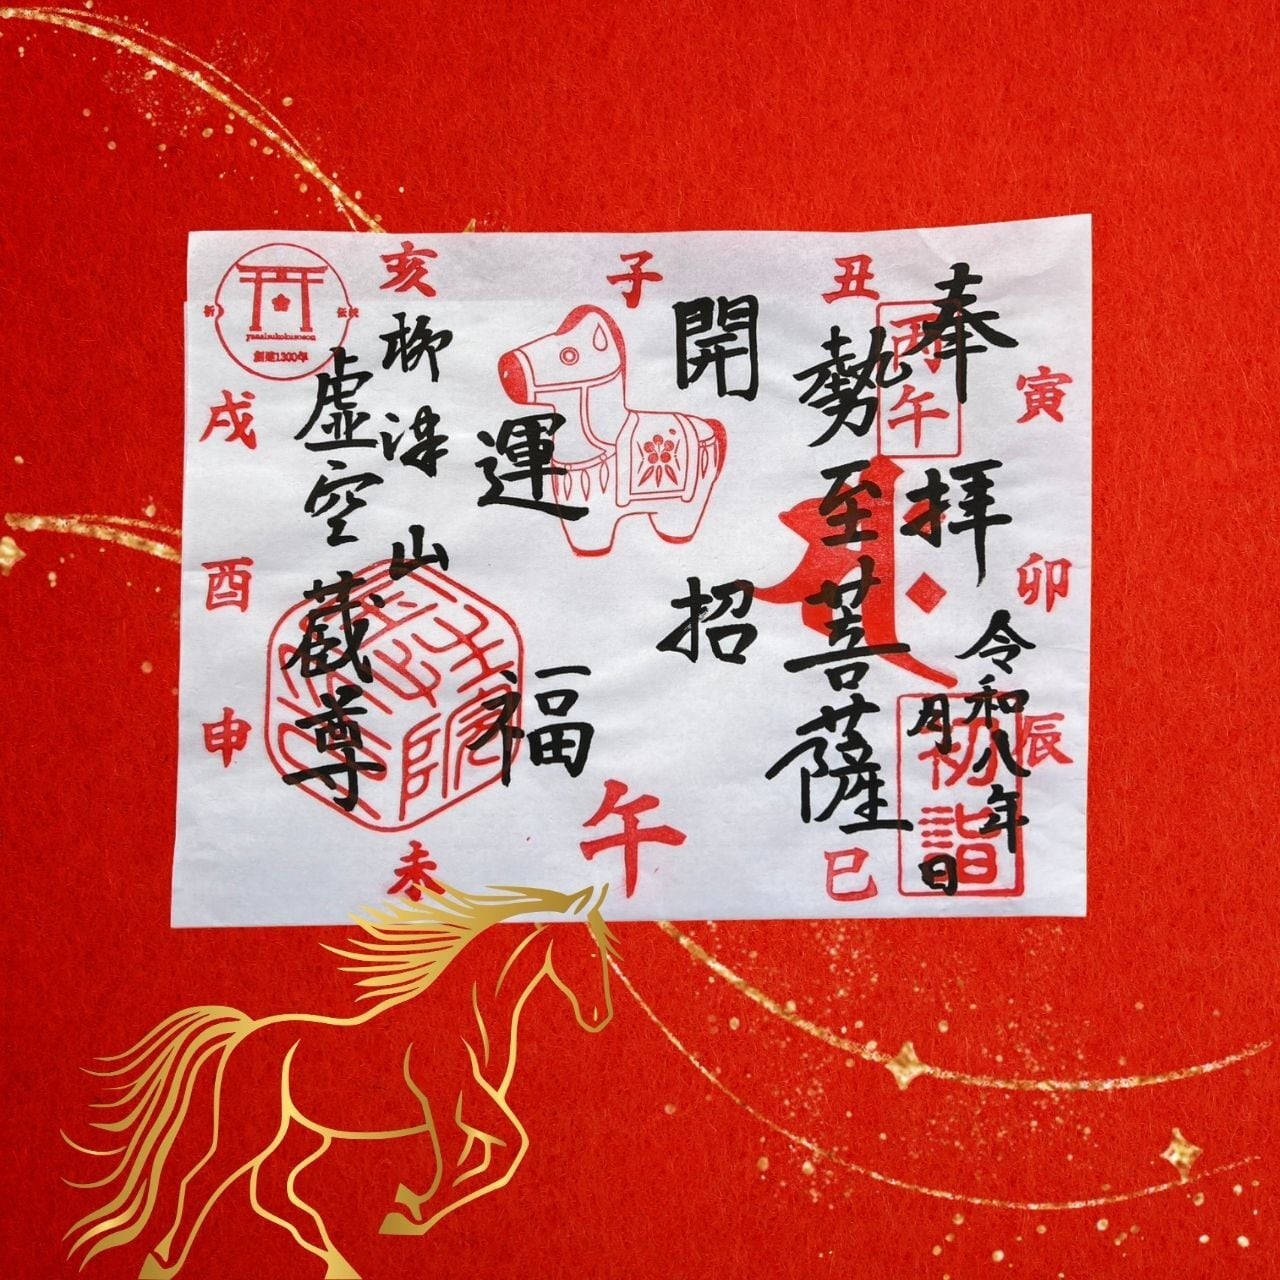 奉拝
令和八年
月 日
丙午
初詣
勢至菩薩
開運
招福
柳津山
虚空蔵尊
子
丑
寅
卯
辰
巳
午
未
申
酉
戌
亥
yanaizukokuzoson
創建1300年